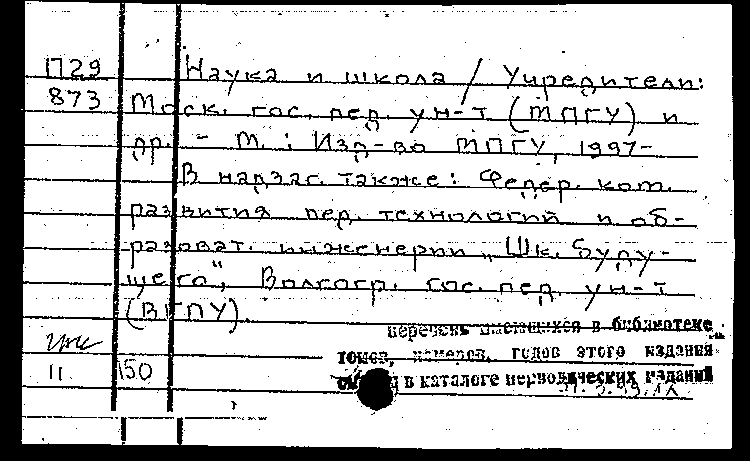 П29 Наука и школа / Учредители:
873 Моск. гос. пед. ун-т (МПГУ) и
др. - М. : Изд-во МПГУ, 1997-
В надзаг. также: Федер. ком.
развития пед. технологий и об-
разоват. инженерии „Шк. буду-
щего", Волгогр. гос. пед. ун-т
(ВГПУ).
перечень имеющихся в библиотеке
томов, номеров, годов этого издания
в каталоге периодических изданий
11 150